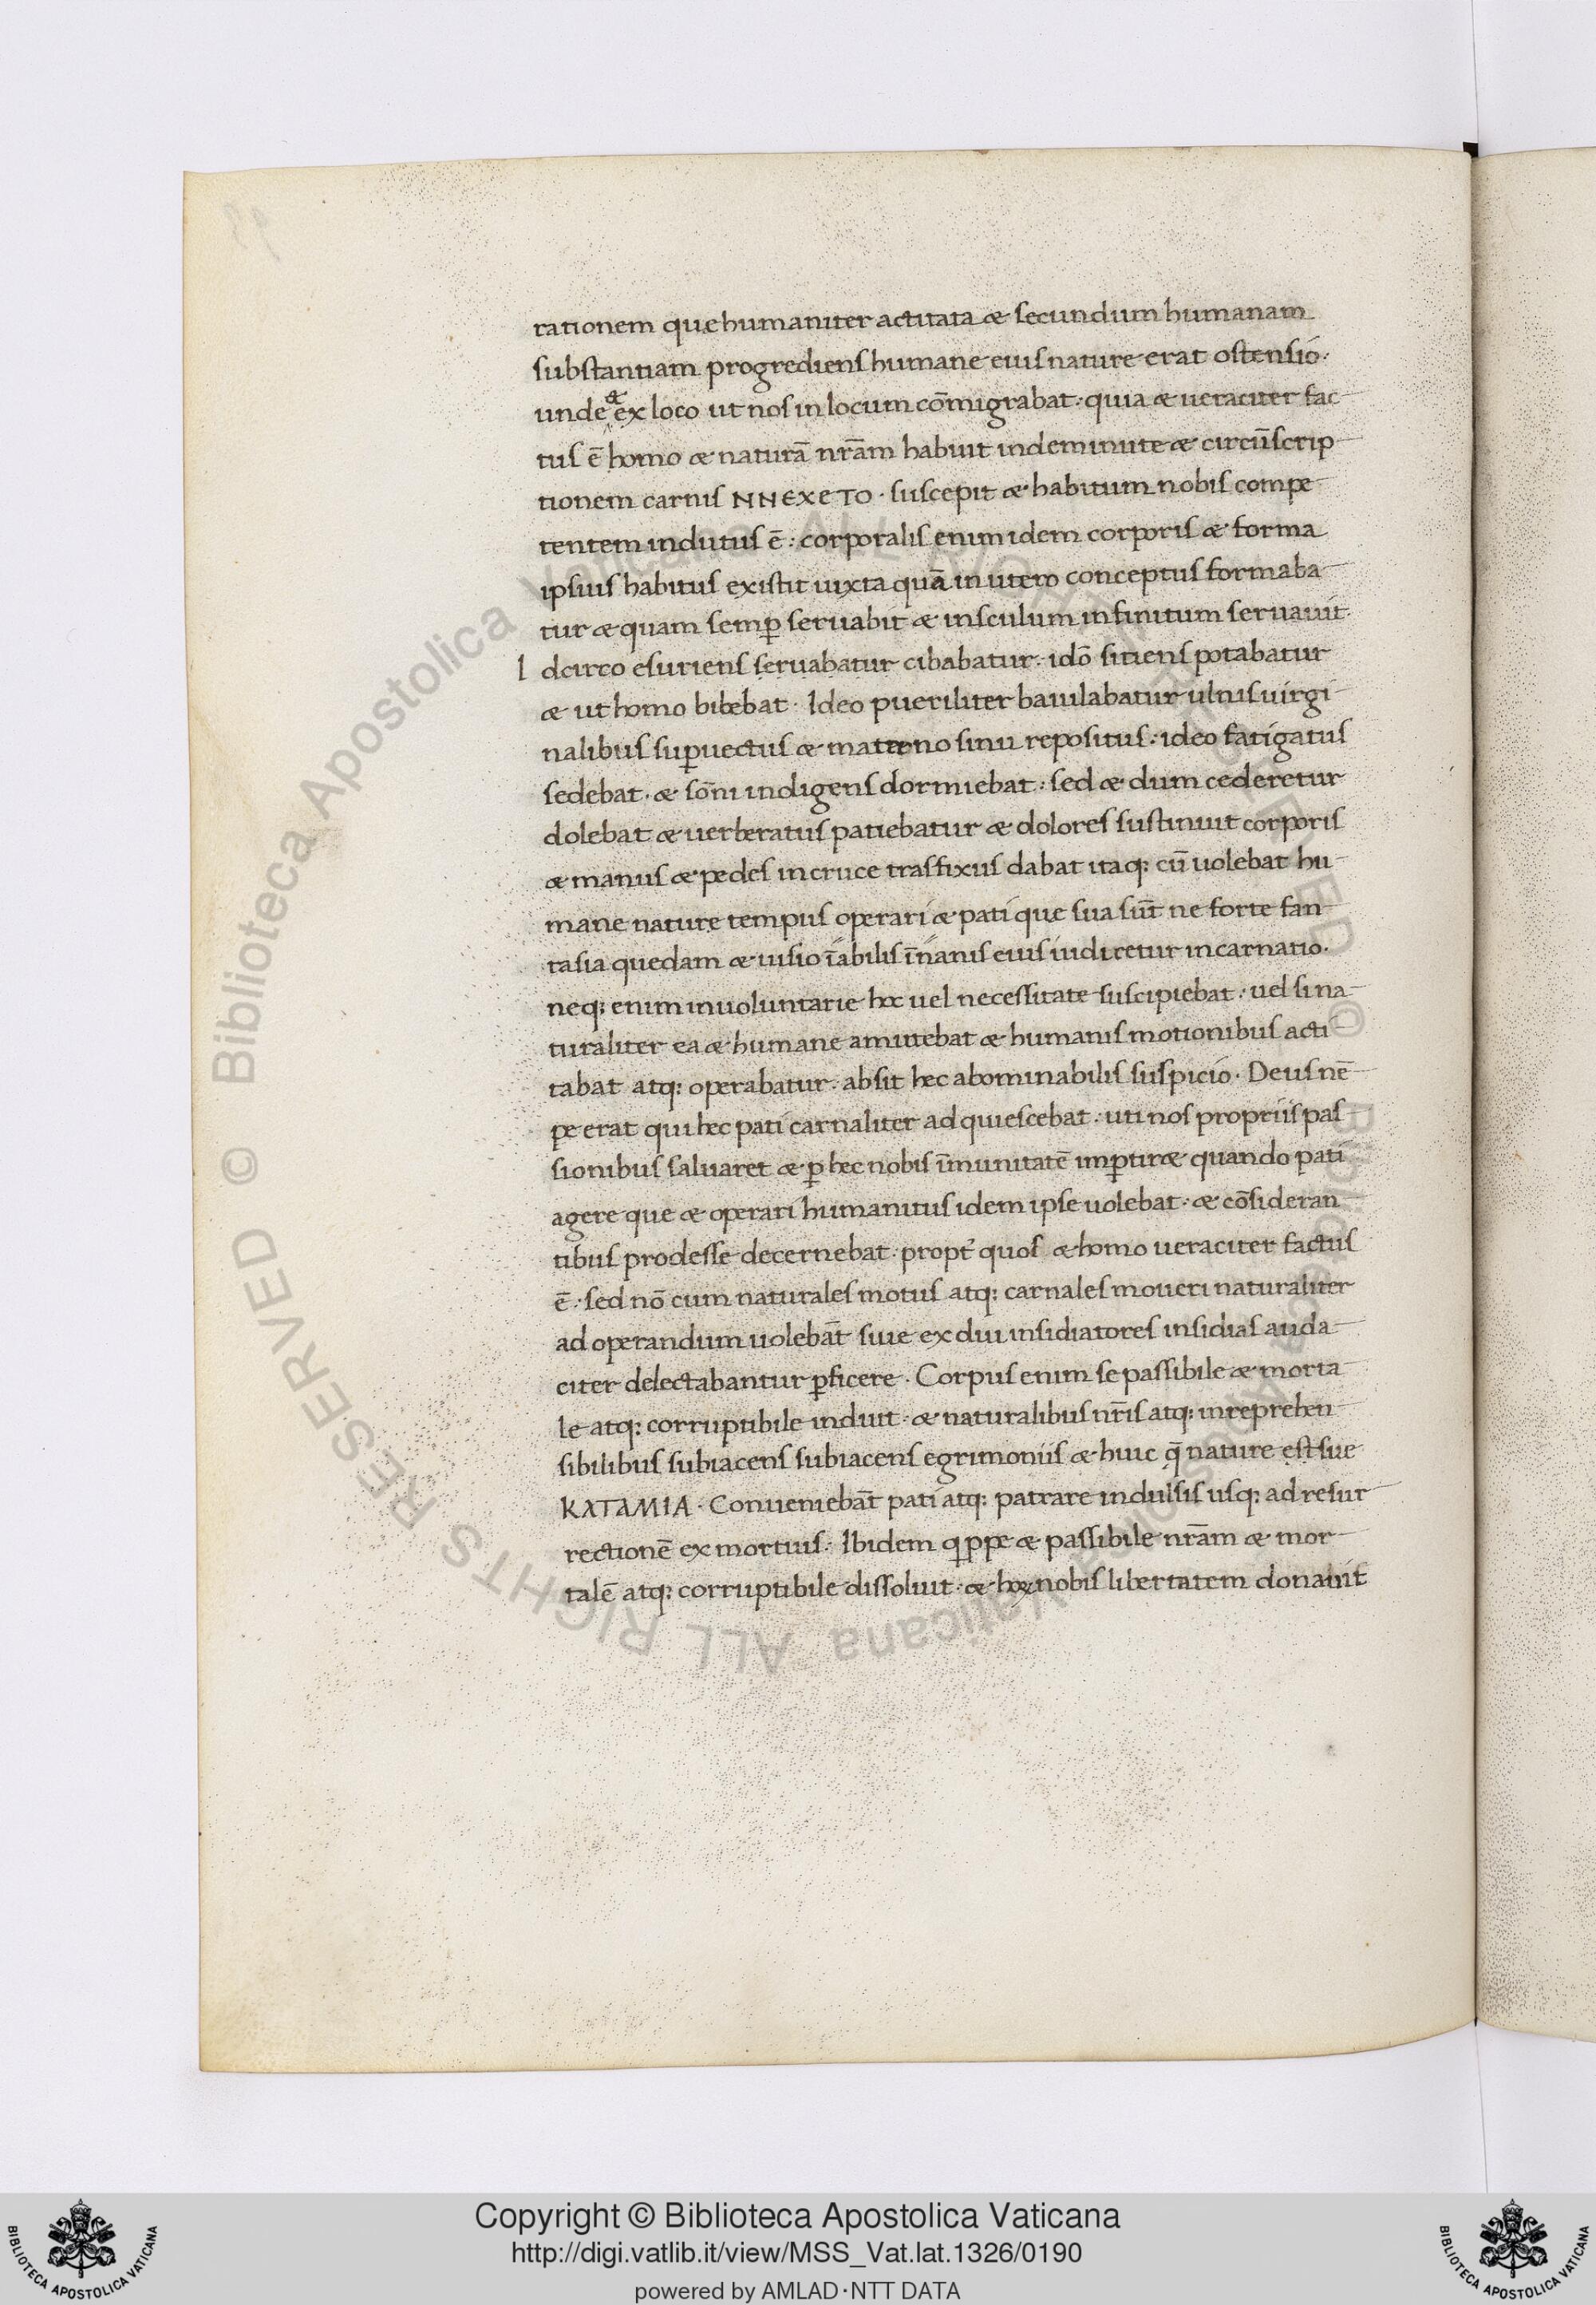 rationem que humaniter actitata æ secundum humanam
substantiam progrediens humane eius nature erat ostensio·
unde & ex loco ut nos in locum cōmigrabat: quia æ ueraciter fac
tus ē homo æ naturā nr̄am habuit indeminute æ circūscrip
tionem carnis NHEXETO· suscepit æ habitum nobis compe
tentem indutus ē: corporalis enim idem corporis æ forma
ipsius habitus existit iuxta quā in utero conceptus formaba
tur æ quam semꝑ seruabit æ insculum infinitum seruauit·
I dcirco esuriens seruabatur cibabatur: idō sitiens potabatur
æ ut homo bibebat· Ideo pueriliter baiulabatur ulnis uirgi
nalibus suꝑuectus æ materno sinu repositus: ideo fatigatus
sedebat· æ sōni indigens dormiebat: sed æ dum cederetur
dolebat æ uerberatus patiebatur æ dolores sustinuit corporis
æ manus æ pedes in cruce trasfixus dabat itaq; cū uolebat hu
mane nature tempus operari æ pati que sua sūt ne forte fan
tasia quedam æ uisio īabilis īnanis eius iudicetur incarnatio·
neq; enim inuoluntarie hoc uel necessitate suscipiebat: uel si na
turaliter ea æ humane amittebat æ humanis motionibus acti
tabat atq; operabatur: absit hec abominabilis suspicio· Deus nē
pe erat qui hec pati carnaliter adquiescebat: uti nos propriis pas
sionibus saluaret æ ꝑ hec nobis īmunitatē imꝑtiræ quando pati
agere que æ operari humanitus idem ipse uolebat: æ cōsideran
tibus prodesse decernebat· propt̄ quos æ homo ueraciter factus
ē: sed nō cum naturales motus atq; carnales moueri naturaliter
ad operandum uolebāt siue ex diu insidiatores insidias auda
citer delectabantur ꝑficere· Corpus enim se passibile æ morta
le atq; corruptibile induit· æ naturalibus nr̄is atq; inreprehen
sibilibus subiacens subiacens egrimoniis æ huic q̄ nature est sue
KATAMIA· Conueniebāt pati atq; patrare indulsis usq; ad resur
rectionē ex mortuis: Ibidem qͥppe æ passibile nr̄am æ mor
talē atq; corruptibile dissoluit· æ hoc nobis libertatem donauit
Copyright © Biblioteca Apostolica Vaticana
http://digi.vatlib.it/view/MSS_Vat.lat.1326/0190
powered by AMLAD·NTT DATA
BIBLIOTECA APOSTOLICA VATICANA
BIBLIOTECA APOSTOLICA VATICANA